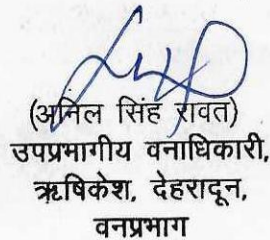 (अनिल सिंह रावत)
उपप्रभागीय वनाधिकारी,
ऋषिकेश, देहरादून,
वनप्रभाग